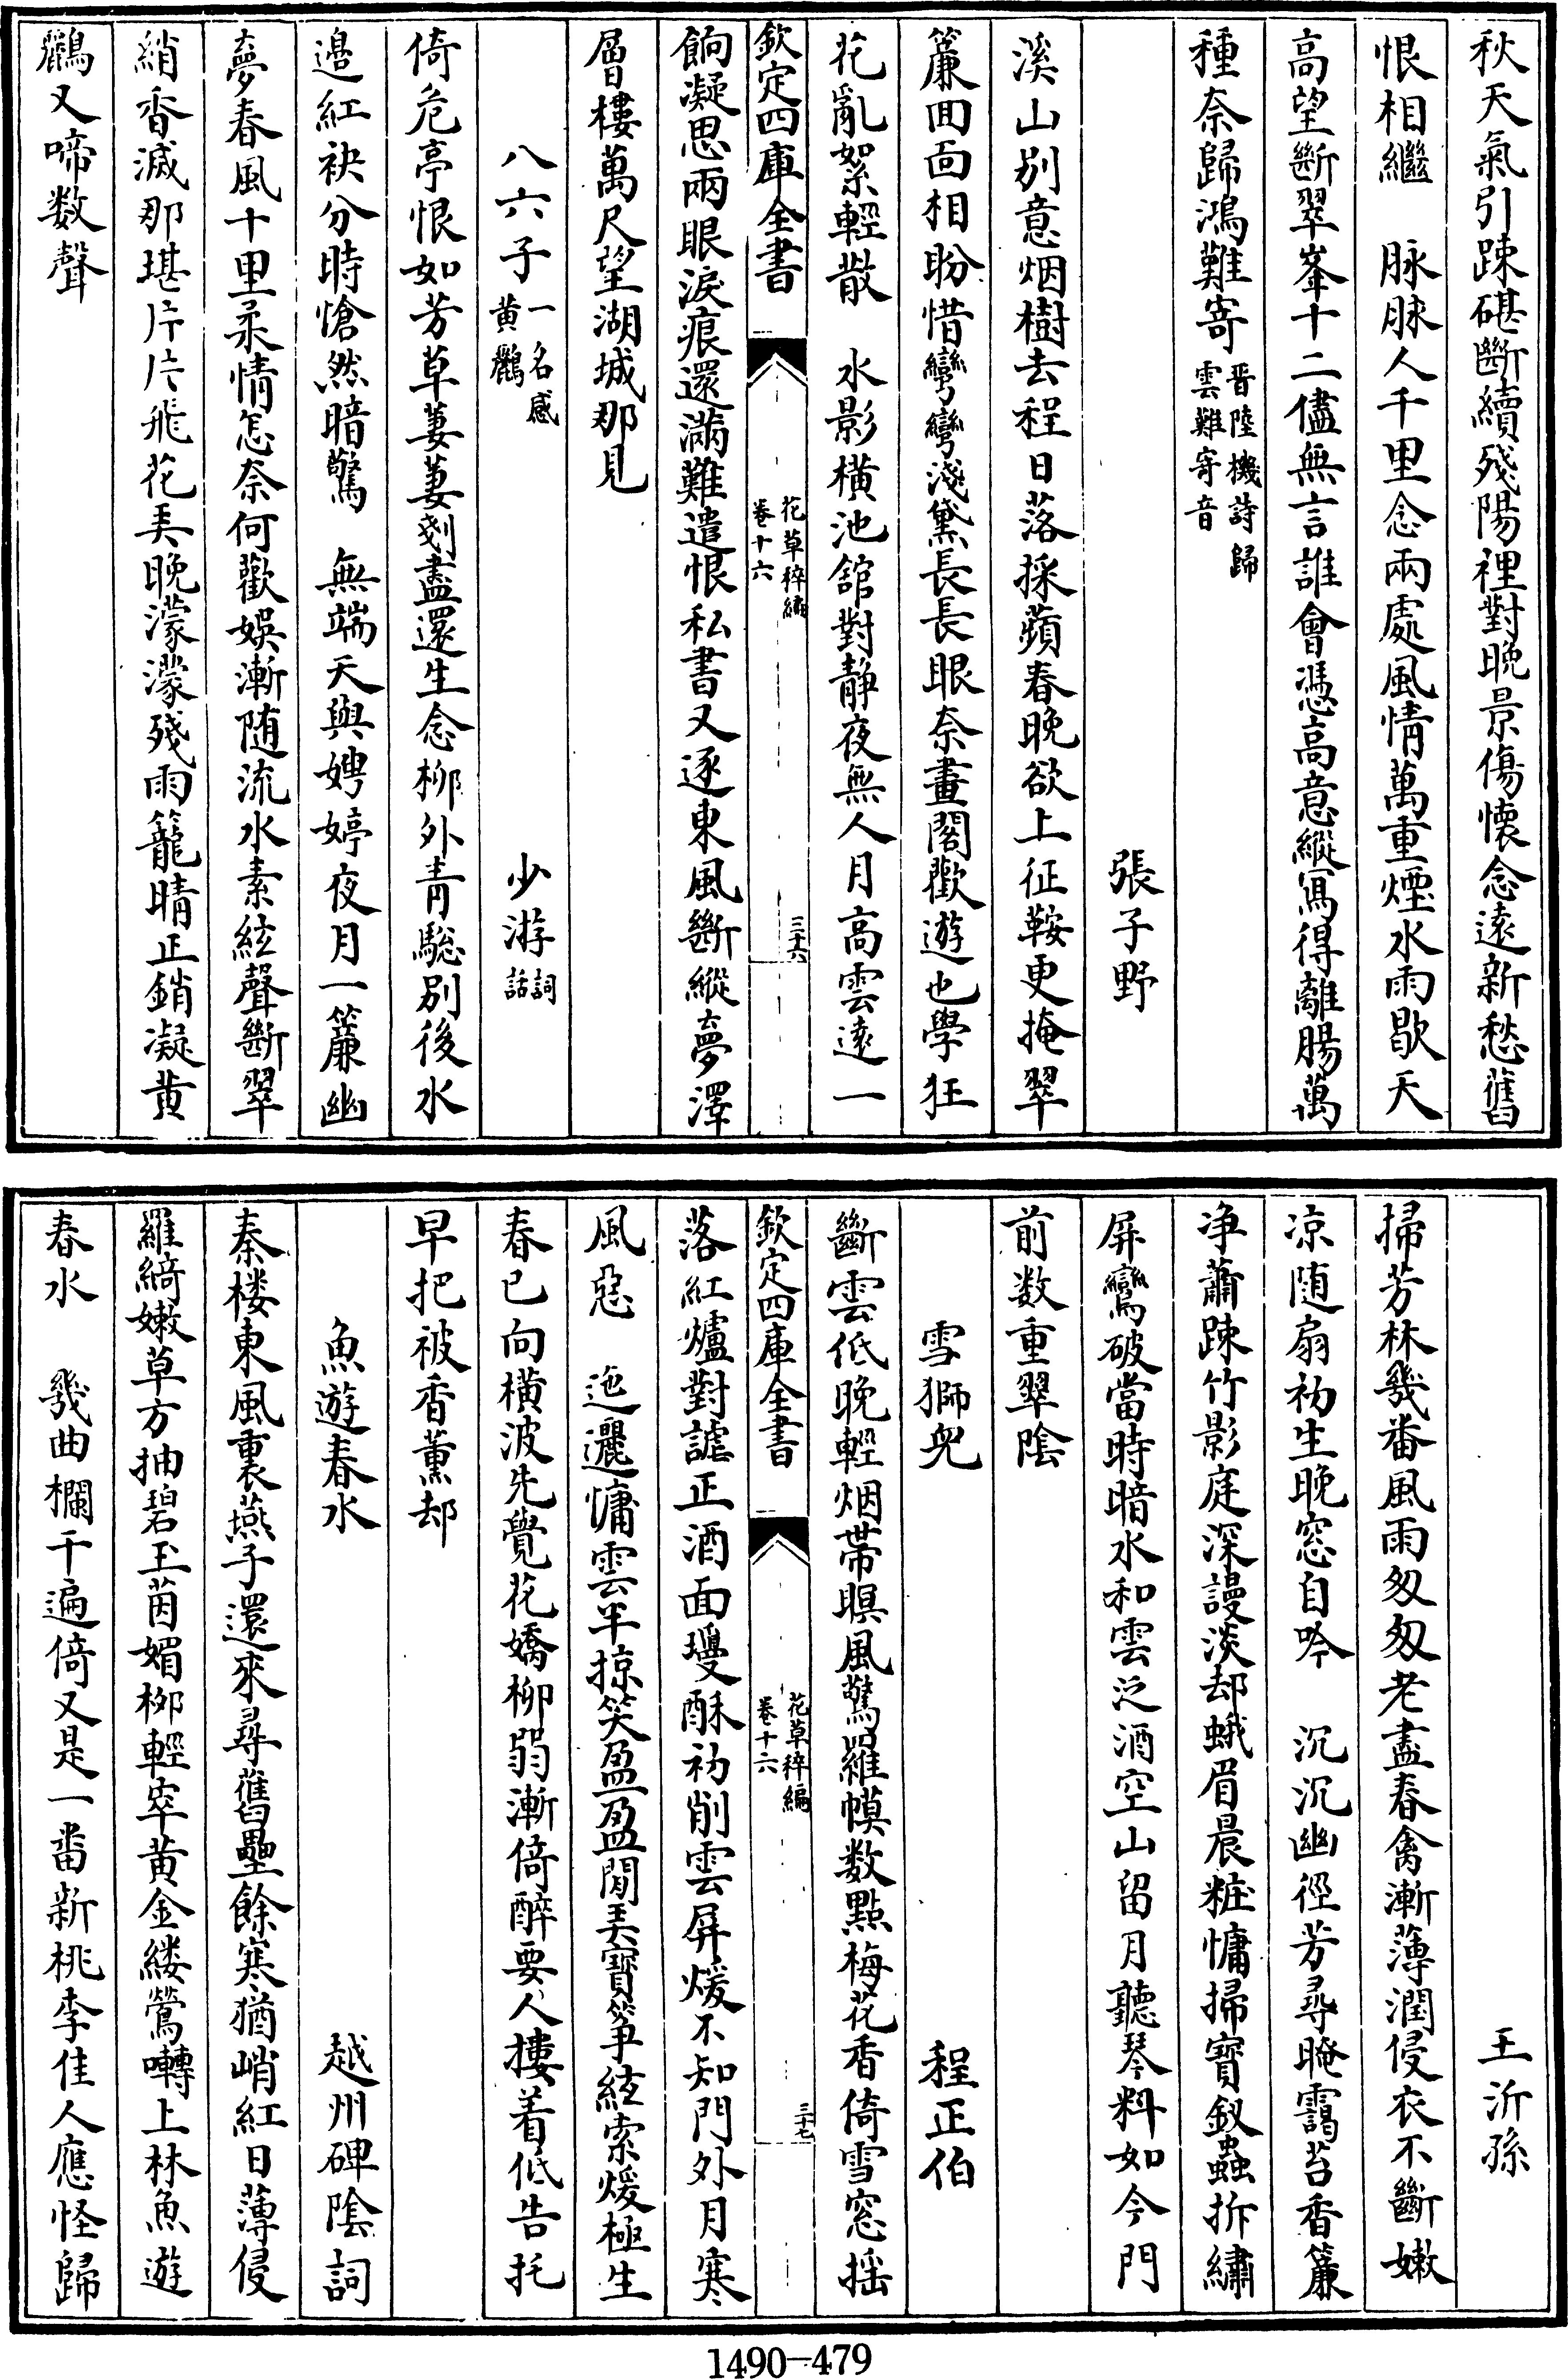 秋天氣引疎碪斷續殘陽裡對晚景傷懷念遠新愁舊
恨相繼　脉脉人千里念兩處風情萬重煙水雨歇天
高望斷翠峯十二儘無言誰會憑高意縱寫得離腸萬
種奈歸鴻難寄晋陸機詩歸雲難寄音
張子野
溪山别意烟樹去程日落採蘋春晚欲上征鞍更掩翠
簾囬面相盼惜彎彎淺黛長長眼奈畫閣歡遊也學狂
花亂絮輕散　水影橫池舘對静夜無人月高雲遠一
欽定四庫全書
花草稡編
卷十六
三十六
餉凝思兩眼淚痕還滿難遣恨私書又逐東風斷縱夢澤
層樓萬尺望湖城那見
八六子一名感黄鸝　少游詞話
倚危亭恨如芳草萋萋剗盡還生念柳外青驄别後水
邉紅袂分時愴然暗驚　無端天與娉婷夜月一簾幽
夢春風十里柔情怎奈何歡娛漸随流水素絃聲斷翠
綃香減那堪片片飛花弄晚濛濛殘雨籠晴正銷凝黄
鸝又啼数聲
王沂孫
掃芳林幾番風雨匆匆老盡春禽漸薄潤侵衣不斷嫩
凉随扇初生晚窓自吟　沉沉幽徑芳尋晻靄苔香簾
净蕭疎竹影庭深謾淡却蛾眉晨粧慵掃寳釵蟲拆繡
屏鸞破當時暗水和雲泛酒空山留月聽琴料如今門
前数重翠陰
雪獅兒　程正伯
斷雲低晚輕烟帶暝風驚羅幙数點梅花香倚雪窓揺
欽定四庫全書
花草稡編
卷十六
三十七
落紅爐對謔正酒面瓊酥初削雲屏煖不知門外月寒
風惡　迤邐慵雲半掠笑盈盈閒弄寳筝絃索煖極生
春已向横波先覺花嬌柳弱漸倚醉要人摟着低告托
早把被香薫却
魚遊春水　越州碑陰詞
秦楼東風裏燕子還來尋舊壘餘寒猶峭紅日薄侵
羅綺嫩草方抽碧玉茵媚柳輕窣黄金縷鶯囀上林魚遊
春水　幾曲欄干遍倚又是一番新桃李佳人應怪歸
1490—479